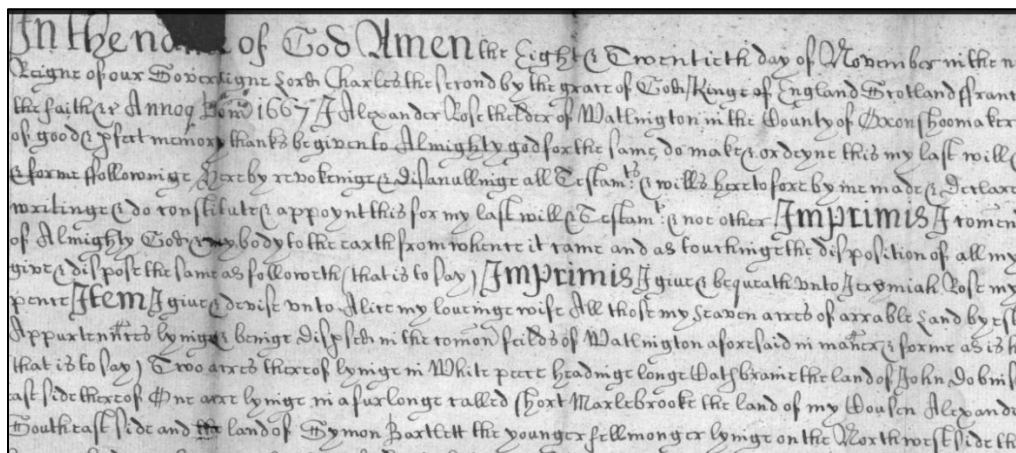 In the na of God Amen the Eight & Twentieth day of November in the n
Reigne of our Soveraigne Lord Charles the second by the grace of God Kinge of England Scotland ffranc
the faith &c Annoq Dom 1667 I Alexander Rose thelder of Watlington in the County of Oxon shoomaker
of good & pfect memory thanks be given to Almighty god for the same, do make & ordeyne this my last will &
& forme ffollowinge, hereby revokeinge & disanullinge all Testamts & wills heretofore by me made & declare
writinge & do constitute & appoynt this for my last will & Testamt & not other Imprimis I comen
of Almighty God & my body to the earth from whence it came and as touchinge the disposition of all my
give & dispose the same as followeth (that is to say) Imprimis I give & bequeath unto Jeremiah Rose my
pence Item I give & devise unto Alice my loveinge wife All those my seaven acres of arrable Land by est
Appurtennces lyinge & beinge dispsed in the comon feilds of Watlington aforesaid in maner & forme as is h
that is to say) Two acres thereof lyinge in White peece headinge longe the land of John Dobins
east side thereof One acre lyinge in a furlonge called short Marlebrooke the land of my Cousen Alexande
South east side and the land of Symon Bartlett the younger fellmonger lyinge on the North west side th